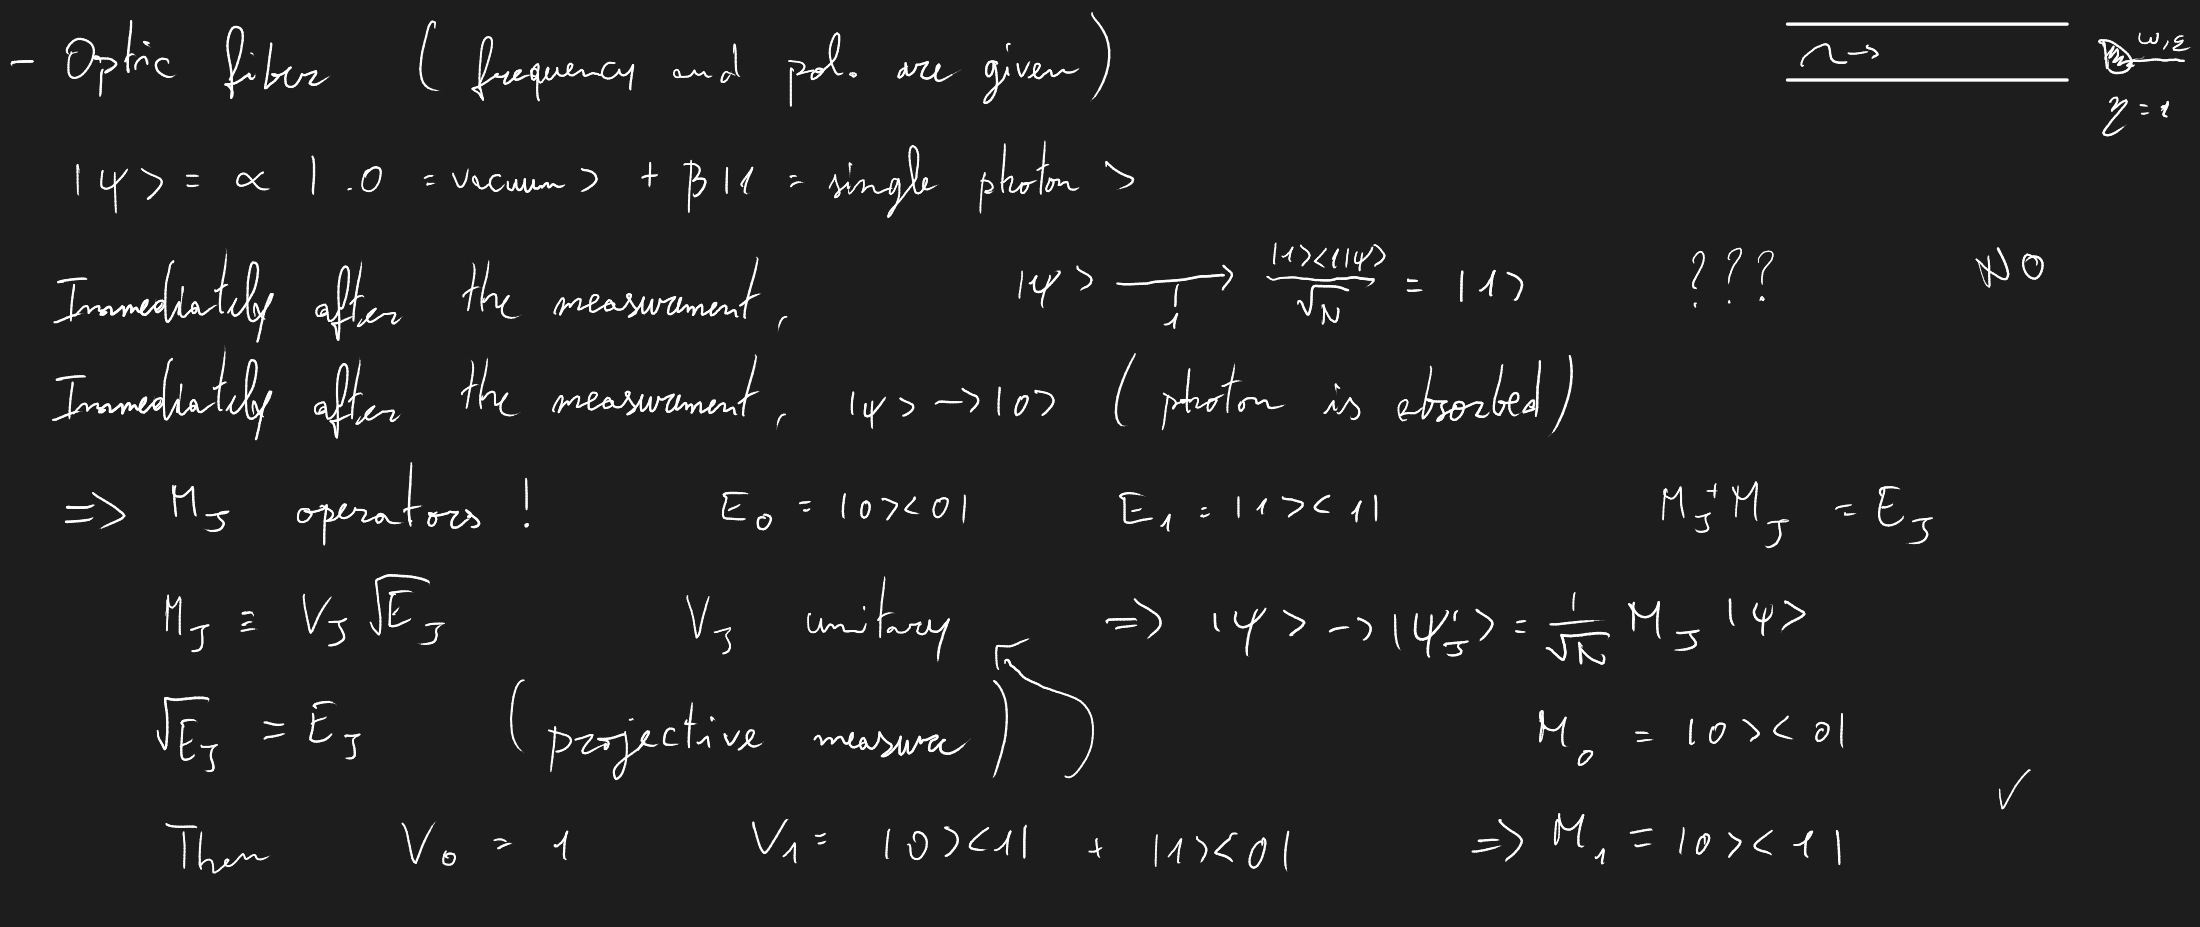 - Optic fiber ( frequency and pol. are given)
ω, ε
η = 1
|ψ> = α | .0 = vacuum > + β |1 = single photon >
Immediately after the measurement, |ψ> →₁ |1><1|ψ> / √N = |1> ??? NO
Immediately after the measurement, |ψ> -> |0> ( photon is absorbed)
=> M_J operators ! E₀ = |0><0| E₁ = |1><1| M_J⁺ M_J = E_J
M_J ≡ V_J √E_J V_J unitary => |ψ> -> |ψ'_J> = 1/√N M_J |ψ>
√E_J = E_J (projective measure) M₀ = |0><0|
Then V₀ = 1 V₁ = |0><1| + |1><0| => M₁ = |0><1| ✓